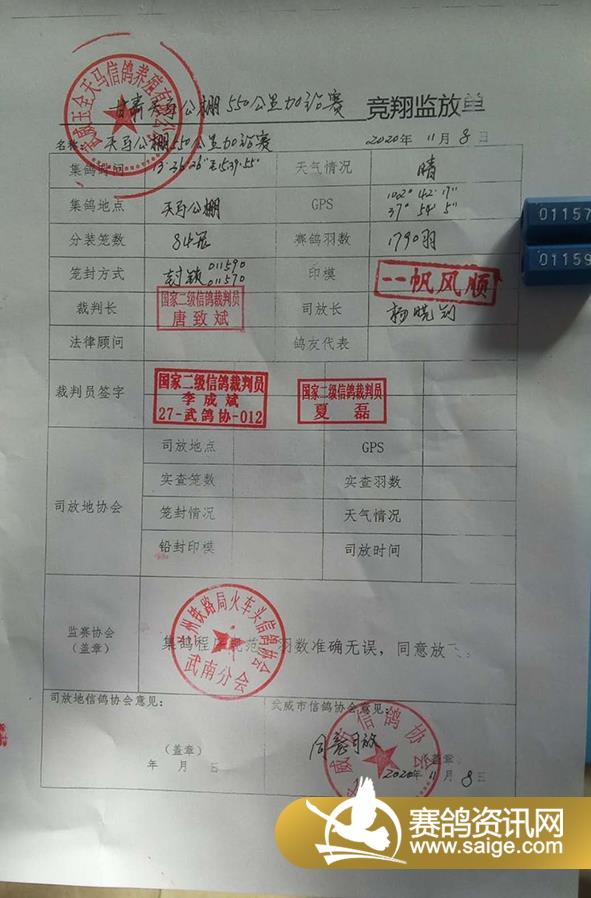 甘肃天马公棚550公里加站赛 竞翔监放单
名称: 天马公棚550公里加站赛 2020年11月8日
集鸽时间 13:36'26"至15:39'55" 天气情况 晴
集鸽地点 天马公棚 GPS 102° 42' 17" 37° 54' 5"
分装笼数 84笼 赛鸽羽数 1790羽
笼封方式 封锁 011590 011570 印模 一帆风顺
裁判长 国家二级信鸽裁判员 唐致斌 司放长
法律顾问 鸽友代表
裁判员签字 国家二级信鸽裁判员 李成斌 27-武鸽协-012 国家二级信鸽裁判员 夏磊
司放地协会
司放地点 GPS
实查笼数 实查羽数
笼封情况 天气情况
铅封印模 司放时间
监赛协会（盖章） 集鸽程序规范 羽数准确无误，同意放飞
州铁路局火车头信鸽协会
武南分会
司放地信鸽协会意见: 武威市信鸽协会意见:
同意司放
（盖章） 盖章
年 月 日 2020年11月8日
01157
01159
赛鸽资讯网
www.saige.com